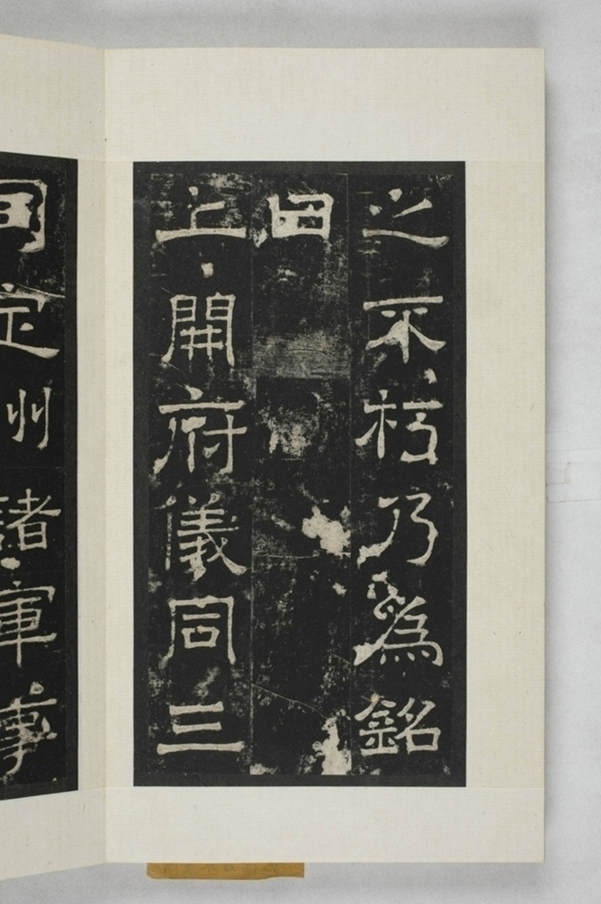 之不朽乃為銘
曰
上開府儀同三
司定州諸軍事